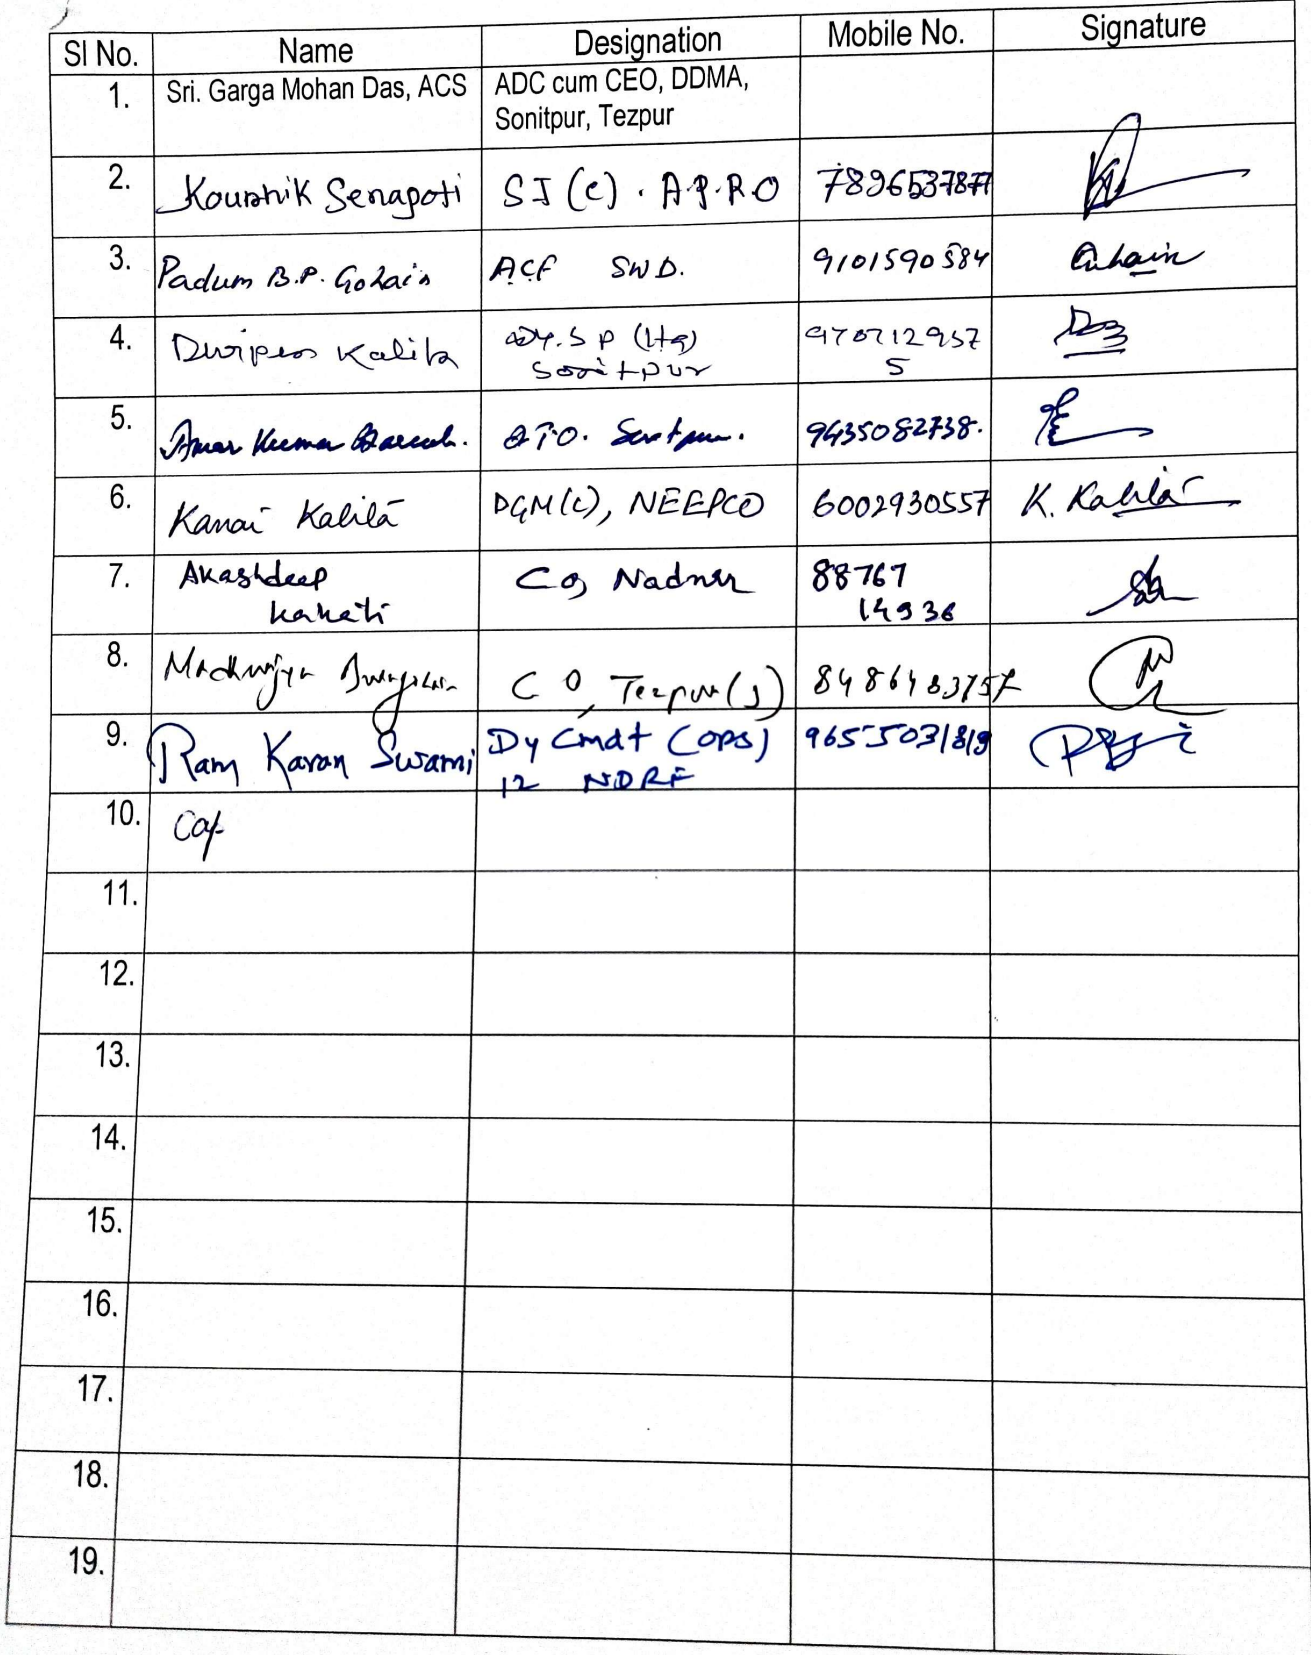 Sl No. Name Designation Mobile No. Signature
1. Sri. Garga Mohan Das, ACS ADC cum CEO, DDMA,
Sonitpur, Tezpur
2. Koushik Senapoti SI (c). A.P.R.O 7896537877
3. Padum B.P. Gohain ACF SWD. 9101590584 Gohain
4. Dwipen Kalita Dy. S P (Hq) 970712957
Sonitpur 5
5. Amar Kumar DTO. Sonitpur. 9435082738.
6. Kanai Kalita DGM(C), NEEPCO 6002930557 K. Kalita
7. Akashdeep CO, Naduar 88767
Kakati 14936
8. CO, Tezpur(s) 8486483757
9. Ram Karan Swami Dy Cmdt (ops) 9655503189
12 NDRF
10.
11.
12.
13.
14.
15.
16.
17.
18.
19.